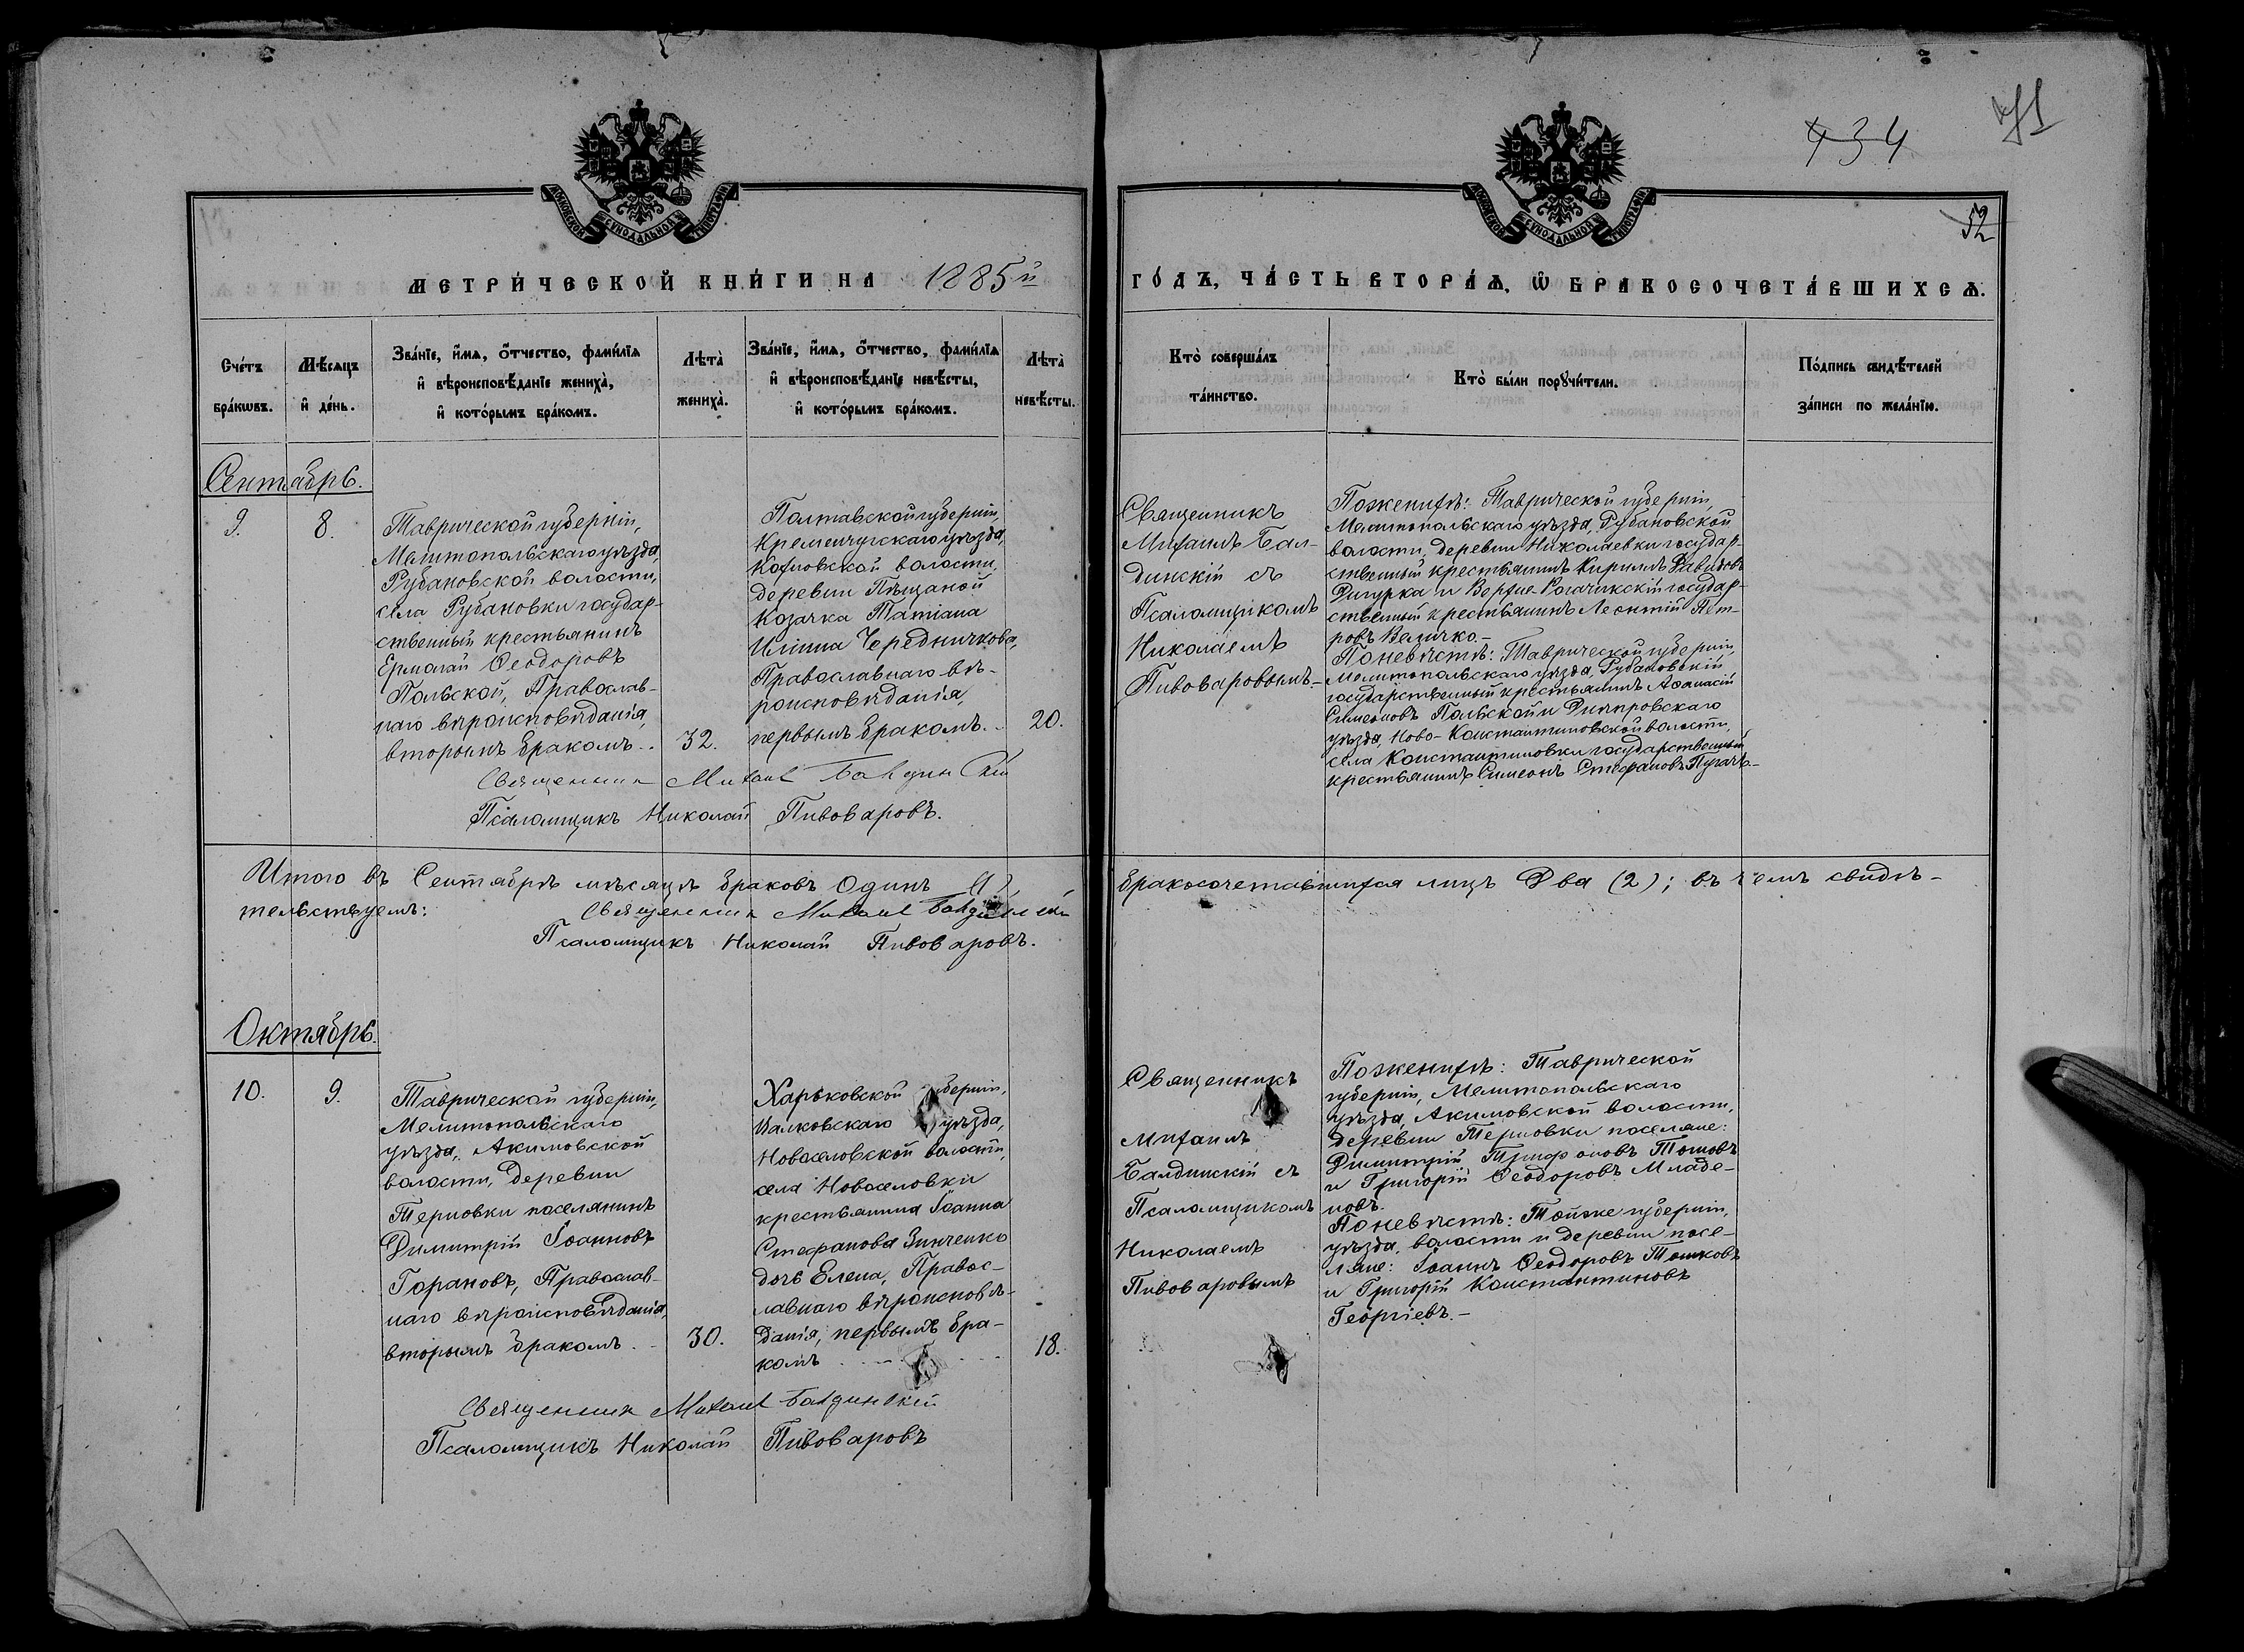 434
71
52
МОСКОВСКОЙ СУНОДАЛЬНОЙ ТИПОГРАФІИ
МОСКОВСКОЙ СУНОДАЛЬНОЙ ТИПОГРАФІИ
МЕТРИ́ЧЕСКОЙ КНИ́ГИ НА 1885й
ГО́ДЪ, ЧА́СТЬ ВТОРА́Ѧ, Ѡ БРАКОСОЧЕТА́ВШИХСѦ.
Сче́тъ
бра́кѡвъ.
Мѣ́сѧцъ
и҆ де́нь.
Зва́нїе, и҆́мѧ, ѻ҆́тчество, фамѝлїѧ
и҆ вѣроисповѣ́данїе жениха̀,
и҆ кото́рымъ бра́комъ.
Лѣта̀
жениха̀.
Зва́нїе, и҆́мѧ, ѻ҆́тчество, фамѝлїѧ
и҆ вѣроисповѣ́данїе невѣ́сты,
и҆ кото́рымъ бра́комъ.
Лѣта̀
невѣ́сты.
Кто̀ соверша́лъ
та́инство.
Кто̀ бы́ли порꙋчи́тели.
По́дпись свидѣ́телей
за́писи по жела́нїю.
Сентябрь.
9.
8.
Таврической губерніи,
Мелитопольскаго уѣзда,
Рубановской волости,
села Рубановки государ-
ственный крестьянинъ
Ермолай Ѳеодоровъ
Польской, Православ-
наго вѣроисповѣданія,
вторымъ бракомъ..
32.
Полтавской губерніи,
Кременчугскаго уѣзда,
волости,
деревни Пѣщаной
козачка Татіана
Иліина Чередничкова,
Православнаго вѣ-
роисповѣданія,
первымъ бракомъ..
20.
Священникъ
Михаилъ Бал-
динскій съ
Псаломщикомъ
Николаемъ
Пивоваровымъ.
По женихѣ: Таврической губерніи,
Мелитопольскаго уѣзда, Рубановской
волости, деревни Николаевки государ-
ственный крестьянинъ Кириллъ Давидовъ
Дигурка и Верхне-Рогачикскій государ-
ственный крестьянинъ Леонтій Пет-
ровъ Величко.-
По невѣстѣ: Таврической губерніи,
Мелитопольскаго уѣзда, Рубановскій
государственный крестьянинъ Аѳанасій
Симеоновъ Польской и Днѣпровскаго
уѣзда, Ново-Константиновской волости,
села Константиновки государственный
крестьянинъ Симеонъ Стефановъ
Священникъ Михаил Балдинский
Псаломщикъ Николай Пивоваровъ.
Итого въ Сентябрѣ мѣсяцѣ браковъ Одинъ (1)
бракосочетавшихся лицъ Два (2); въ чемъ свидѣ-
тельствуемъ:
Священник Михаил Балдинский
Псаломщикъ Николай Пивоваровъ.
Октябрь.
10.
9.
Таврической губерніи,
Мелитопольскаго
уѣзда, Акимовской
волости, деревни
Терновки поселянинъ
Димитрій Іоанновъ
Горановъ, Православ-
наго вѣроисповѣданія,
вторымъ бракомъ..
30.
Харьковской губерніи,
Валковскаго уѣзда,
Новоселовской волости,
села Новоселовки
крестьянина Іоанна
Стефанова Зинченко
дочь Елена, Правос-
лавнаго вѣроисповѣ-
данія, первымъ бра-
комъ
18.
Священникъ
Михаилъ
Балдинскій съ
Псаломщикомъ
Николаемъ
Пивоваровымъ
По женихѣ: Таврической
губерніи, Мелитопольскаго
уѣзда, Акимовской волости,
деревни Терновки поселяне:
Димитрій Трифоновъ Тоновъ
и Григорій Ѳеодоровъ Младе-
новъ.
По невѣстѣ: Той же губерніи,
уѣзда, волости и деревни посе-
ляне: Іоаннъ Ѳеодоровъ Тошковъ
и Григорій Константиновъ
Георгіевъ.-
Священник Михаил Балдинский
Псаломщикъ Николай Пивоваровъ